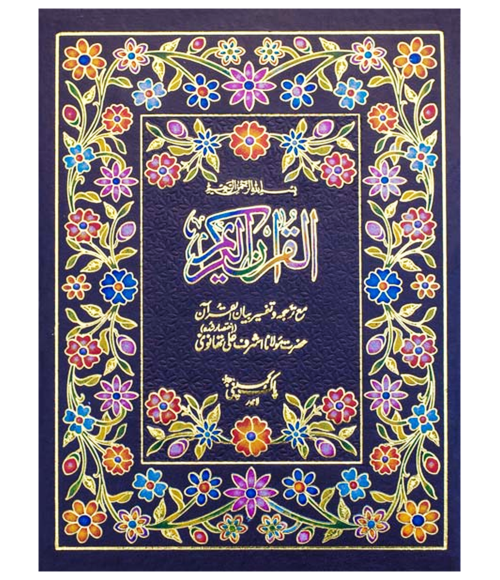 بسم الله الرحمن الرحیم
القرآن الکریم
مع ترجمہ و تفسیر بیان القرآن
(اختصار شدہ)
حضرت مولانا اشرف علی تھانویؒ
پاک کمپنی